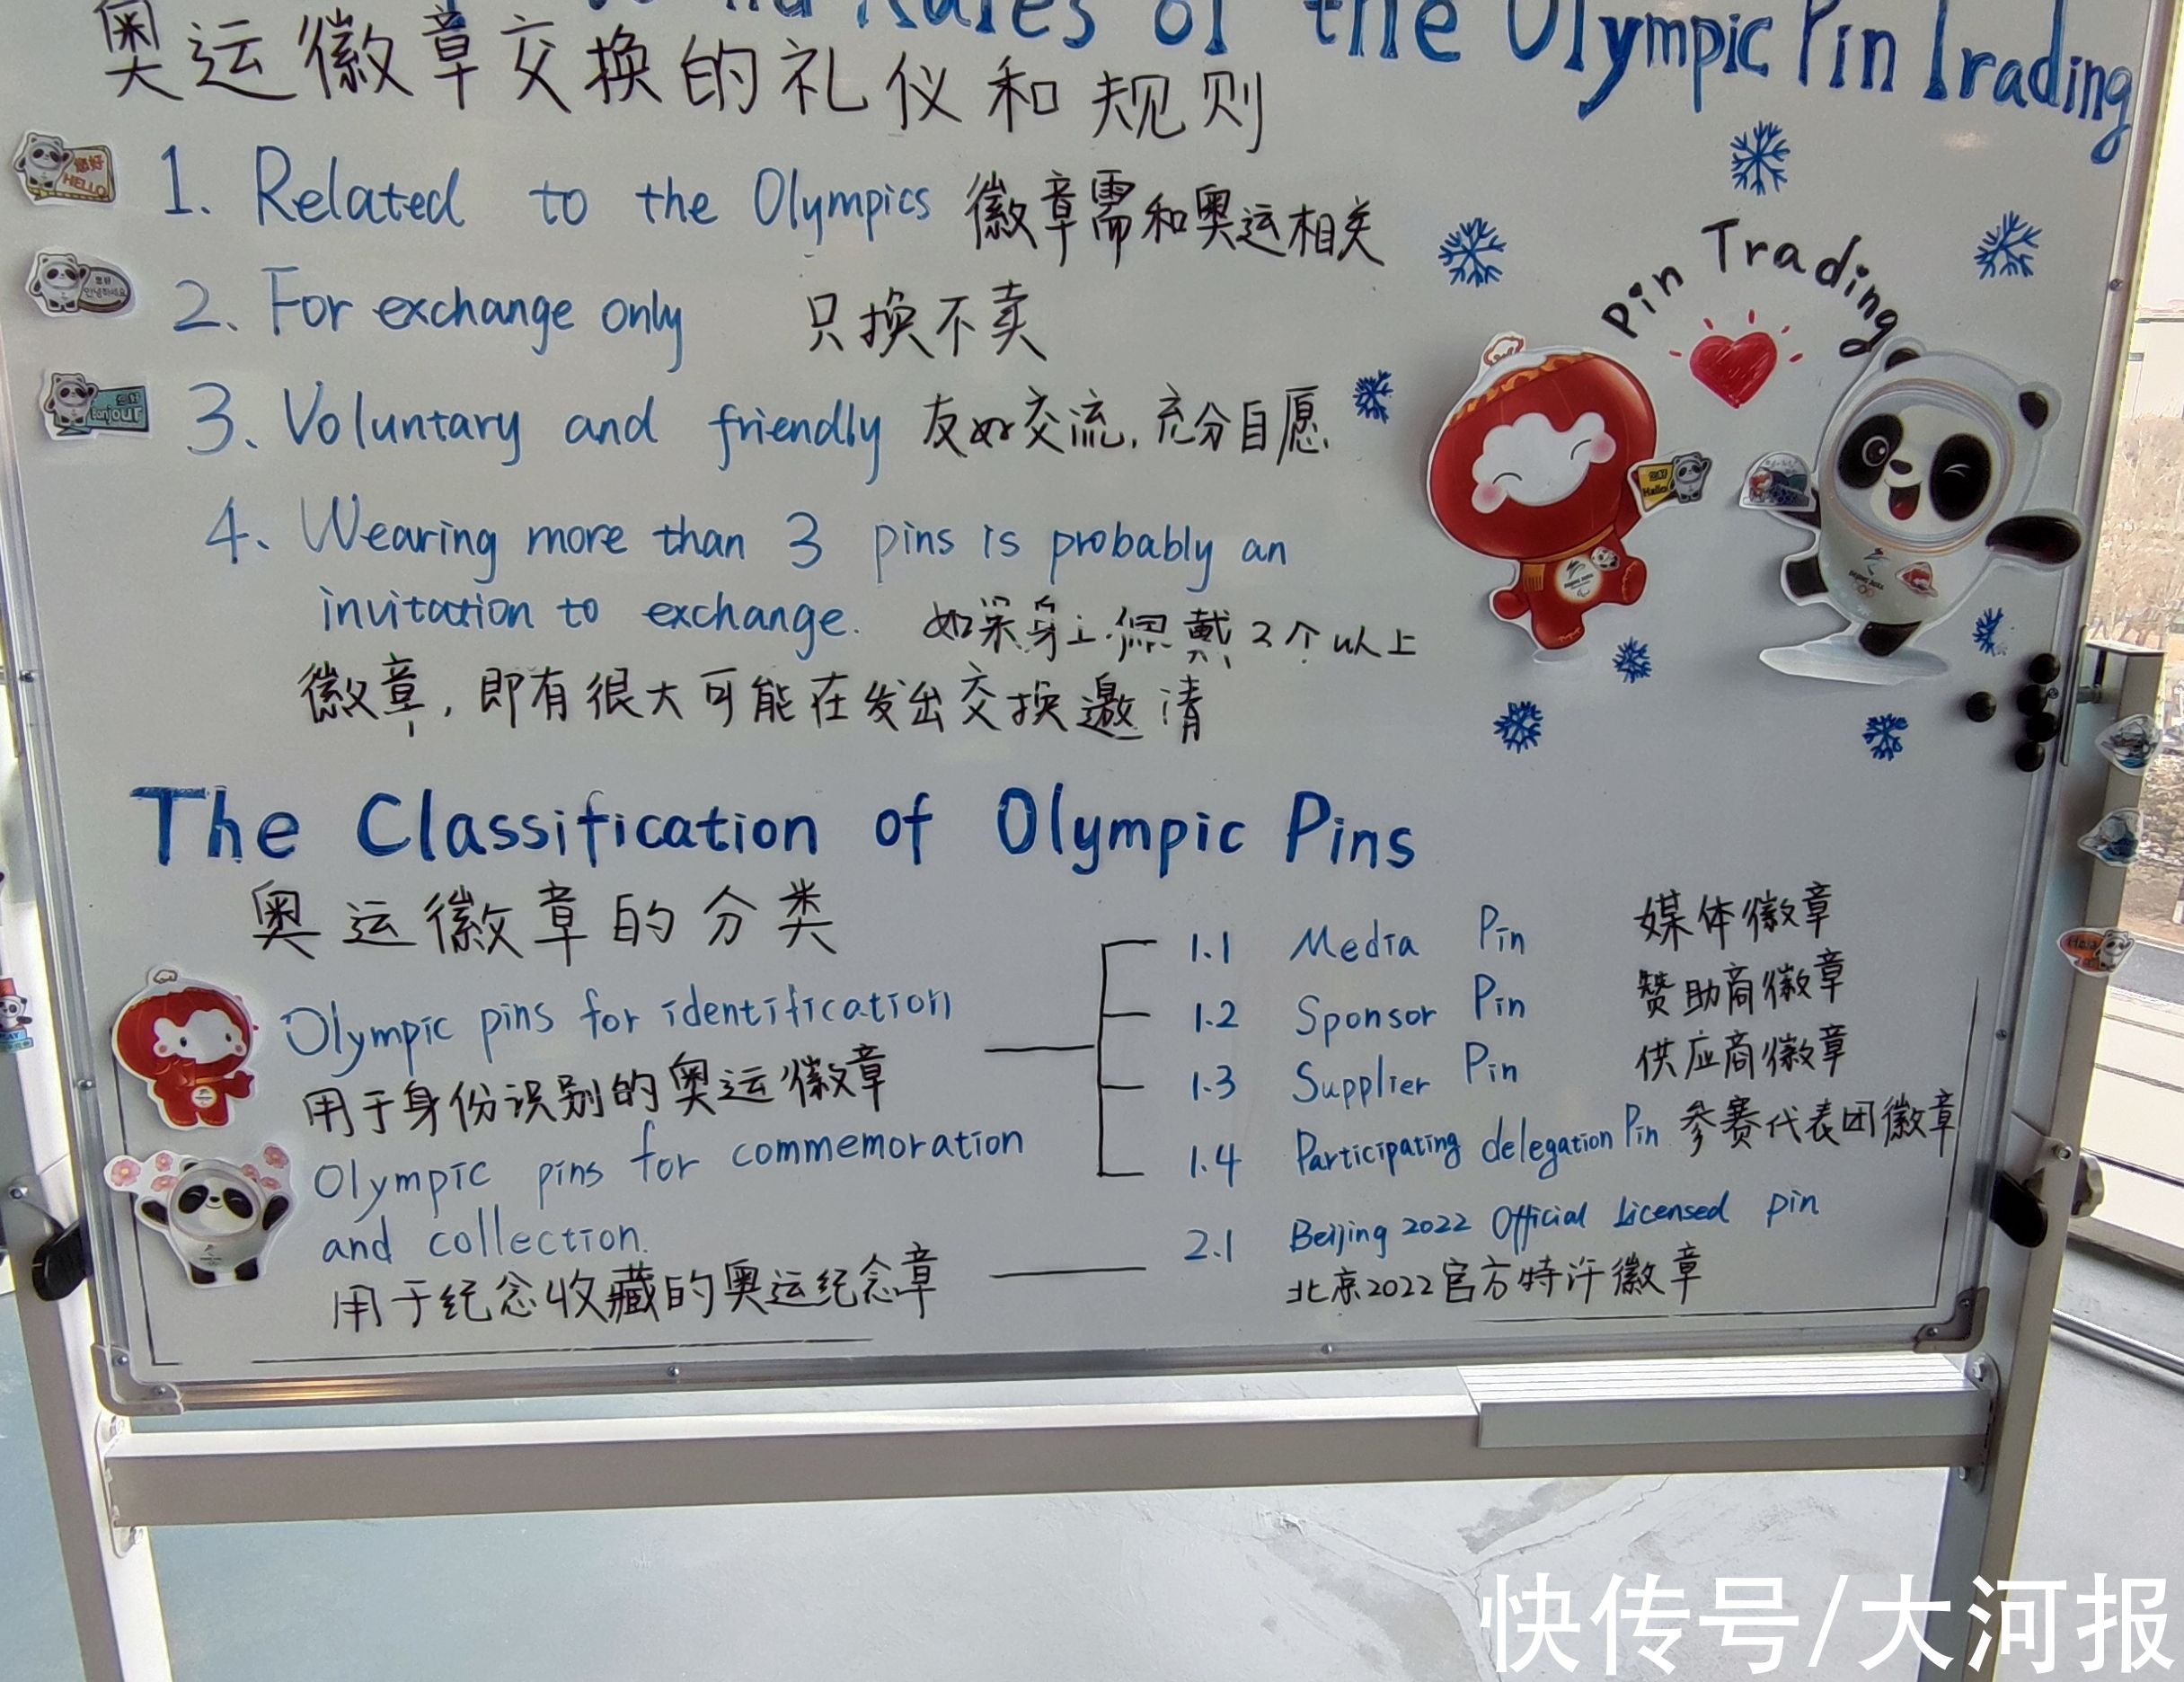 Rules of the Olympic Pin Trading
奥运徽章交换的礼仪和规则
1. Related to the Olympics 徽章需和奥运相关
2、For exchange only 只换不卖
3、Voluntary and friendly 友好交流,充分自愿
4、Wearing more than 3 pins is probably an
invitation to exchange. 如果身上佩戴3个以上
徽章,即有很大可能在发出交换邀请
Pin Trading
您好
HELLO
Bonjour
Hello
The Classification of Olympic Pins
奥运徽章的分类
Olympic pins for identification
用于身份识别的奥运徽章
1.1 Media Pin 媒体徽章
1.2 Sponsor Pin 赞助商徽章
1.3 Supplier Pin 供应商徽章
1.4 Participating delegation Pin 参赛代表团徽章
Olympic pins for commemoration
and collection.
用于纪念收藏的奥运纪念章
2.1 Beijing 2022 Official Licensed pin
北京2022官方特许徽章
快传号/大河报